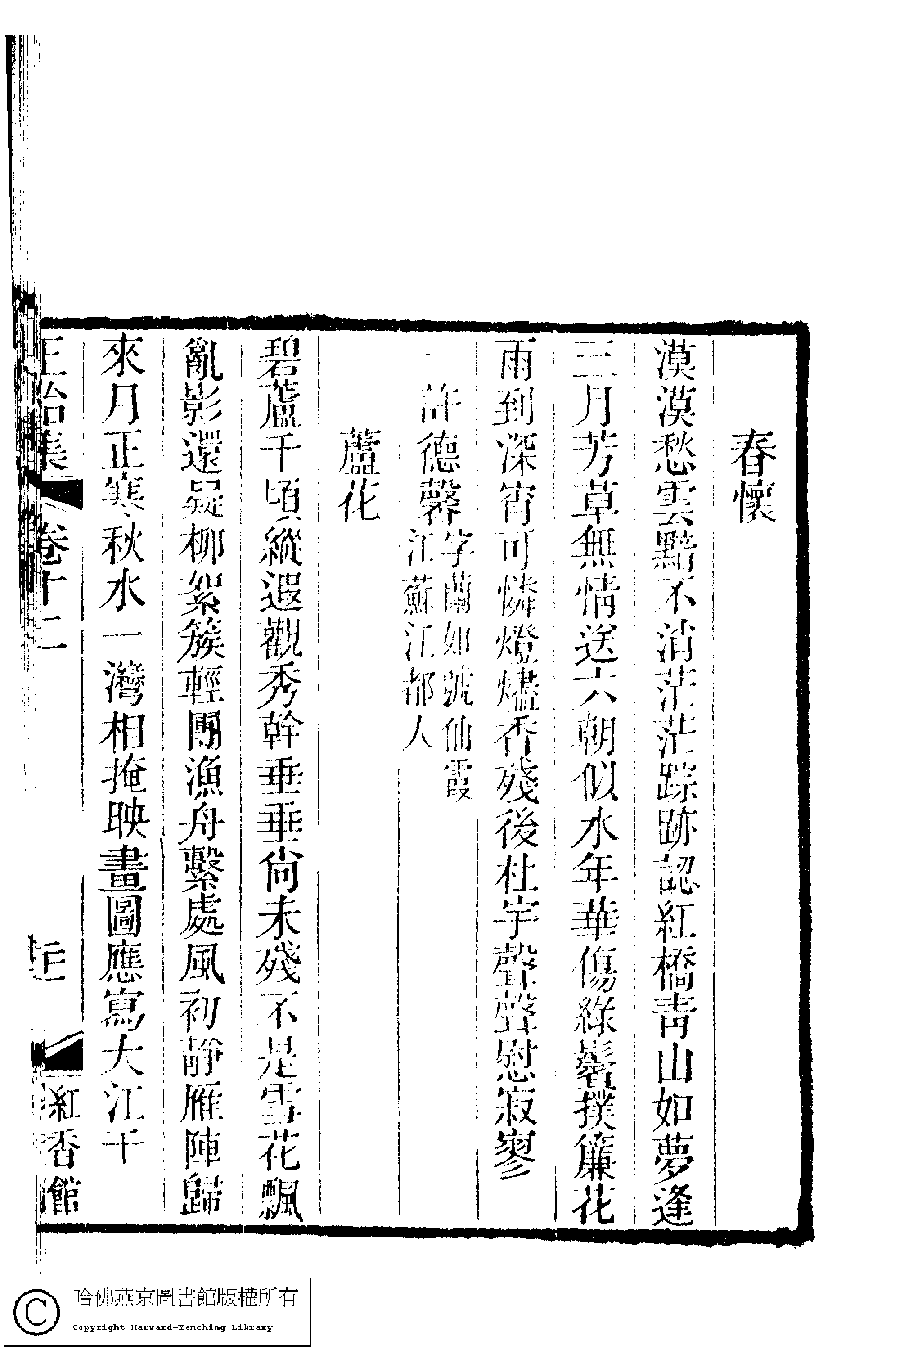 春懷
漠漠愁雲黯不消茫茫踪跡認紅橋青山如夢逢
三月芳草無情送六朝似水年華傷綠鬢撲簾花
雨到深宵可憐燈燼香殘後杜宇聲聲慰寂寥
許德馨字蘭如號仙霞
江蘇江都人
蘆花
碧蘆千頃縱遐觀秀幹垂垂尚未殘不是雪花飄
亂影還疑柳絮簇輕團漁舟繫處風初靜雁陣歸
來月正寒秋水一灣相掩映畫圖應寫大江干
正始集
卷十二
紅香館
哈佛燕京圖書館版權所有
Copyright Harvard-Yenching Library